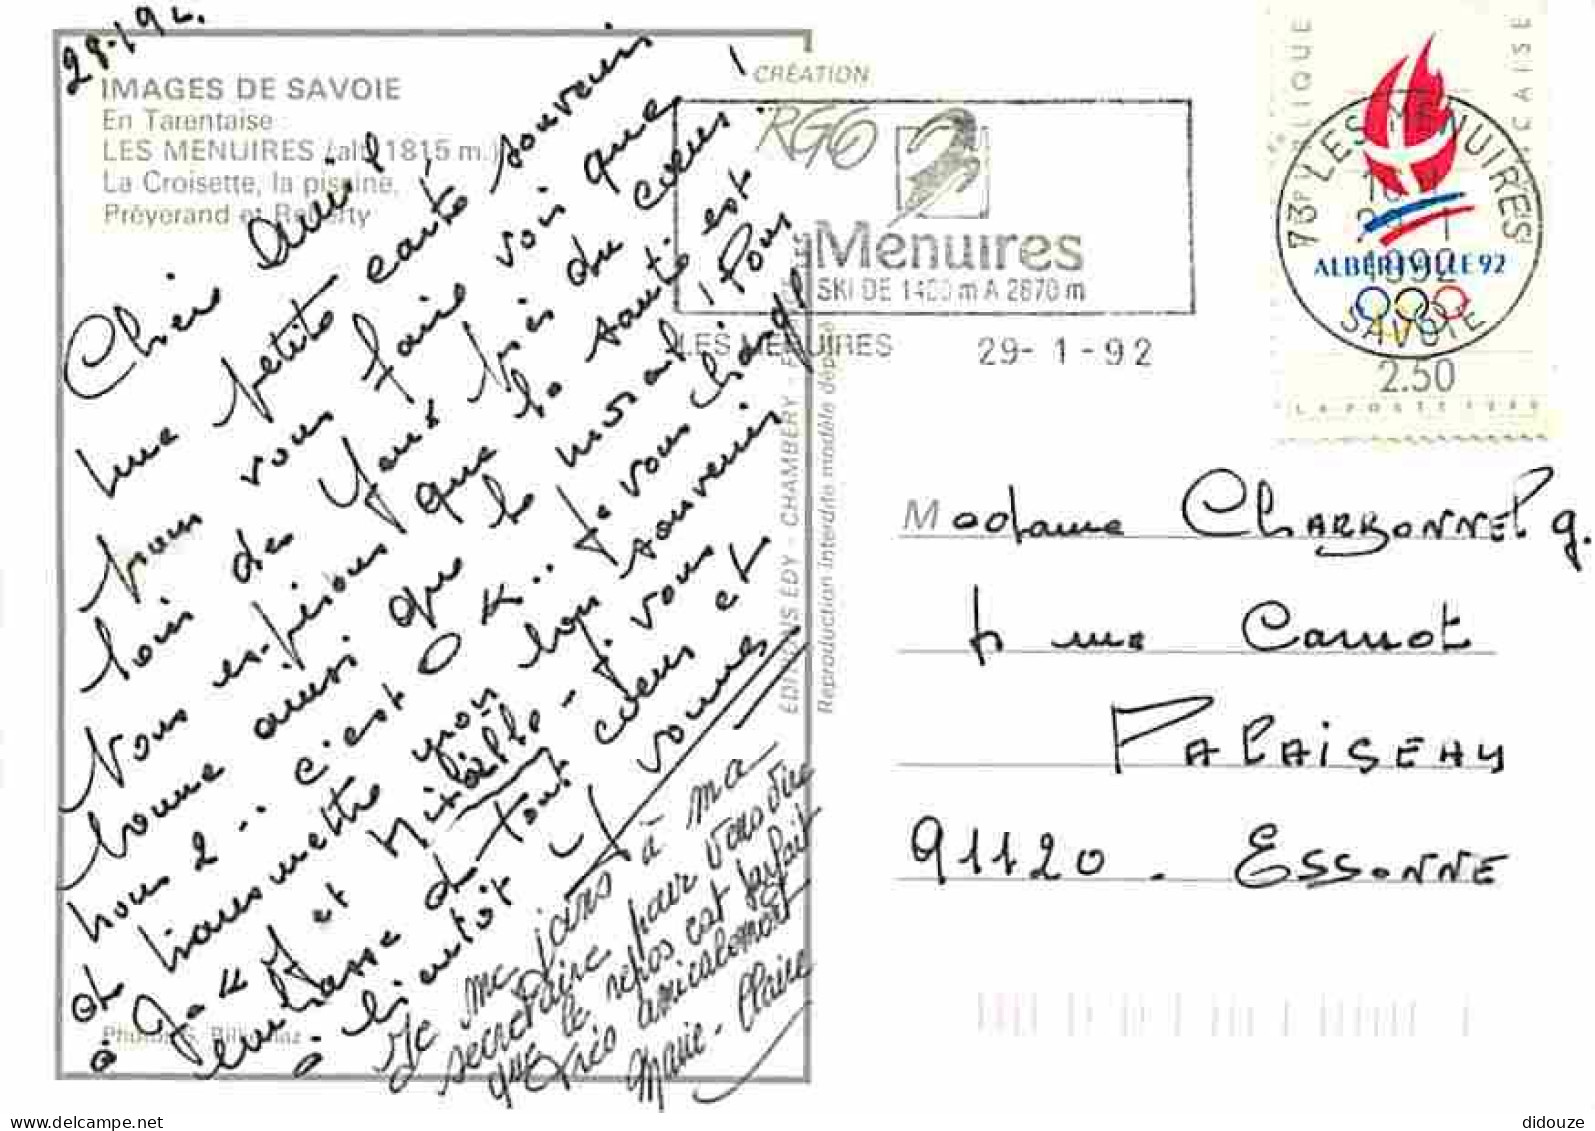 28.1.92.
IMAGES DE SAVOIE
En Tarentaise
LES MENUIRES (alt. 1815 m.)
La Croisette, la piscine,
Préyerand et Reberty
Une petite carte souvenir
pour vous faire voir que
loin des yeux près du cœur !
Nous espérons que la santé est
bonne ainsi que le moral ! Pour
nous 2 .. c'est OK .. Je vous charge
de transmettre mon bon souvenir
à et Mireille - Je vous
embrasse de tout cœur et
à bientôt
Je me joins à ma
secrétaire pour vous dire
que le repos est parfait
Très amicalement
Marie-Claire
CRÉATION
RG6
Menuires
SKI DE 1400 m A 2870 m
LES MENUIRES 29-1-92
ÉDITIONS EDY - CHAMBÉRY
Reproduction interdite modèle déposé
73P LES MENUIRES
1992
SAVOIE
ALBERTVILLE 92
2.50
LA POSTE 1990
Madame CHARBONNEL g.
rue Carnot
PALAISEAU
91120. ESSONNE
www.delcampe.net
didouze